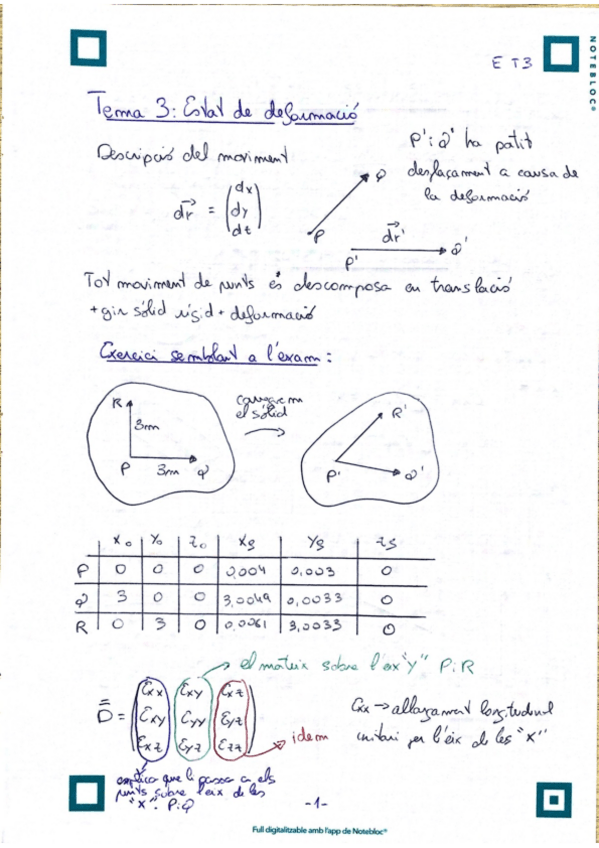 NOTEBLOC®
E T3
Tema 3: Estat de deformació
Descripció del moviment
P' i Q' ha patit
desplaçament a causa de
la deformació
dr = (dx
dy
dt)
P
Q
dr'
P'
Q'
Tot moviment de punts es descomposa en translació
+ gir sòlid rígid + deformació
Exercici semblant a l'examen:
carreguem
el sòlid
R
3m
P
3m
Q
R'
P'
Q'
X0 Y0 Z0 Xf Yf Zf
P 0 0 0 0,004 0,003 0
Q 3 0 0 3,0049 0,0033 0
R 0 3 0 0,0061 3,0033 0
el mateix sobre l'eix "y" P i R
D = (Exx Exy Exz
Exy Eyy Eyz
Exz Eyz Ezz)
idem
Exx → allargament longitudinal
unitari per l'eix de les "x"
explica que li passa a els
punts sobre l'eix de les
"x". P i Q
-1-
Full digitalitzable amb l'app de Notebloc®